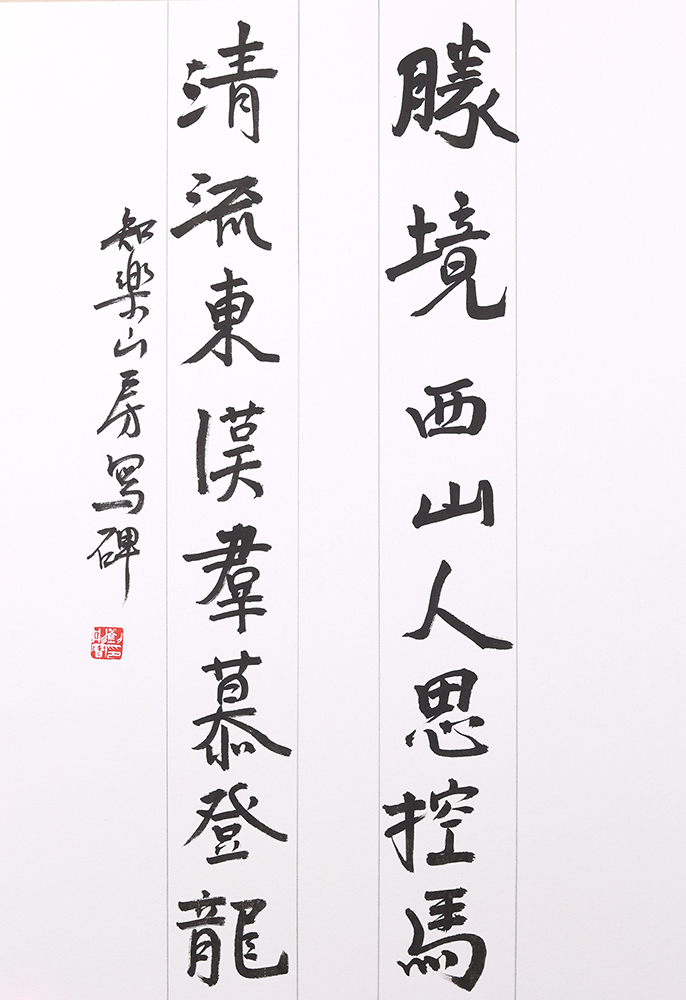 勝境西山人思控馬
清流東漢羣慕登龍
知樂山房寫碑